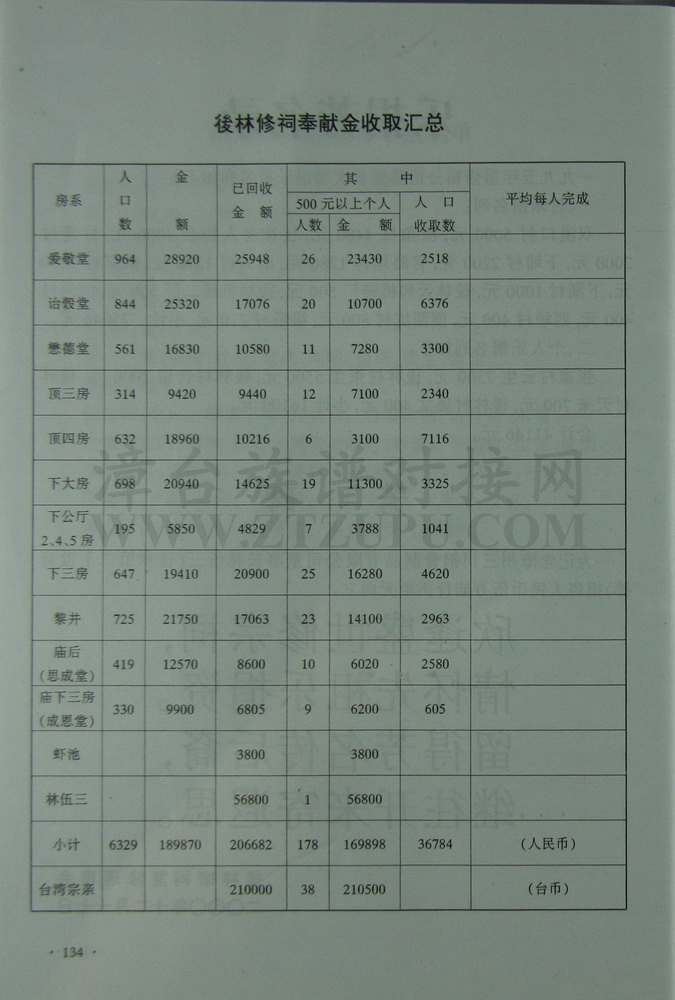 後林修祠奉献金收取汇总
房系 人口数 金额 已回收金额 其中 平均每人完成
500元以上个人 人口收取数
人数 金额
爱敬堂 964 28920 25948 26 23430 2518
诒穀堂 844 25320 17076 20 10700 6376
懋德堂 561 16830 10580 11 7280 3300
顶三房 314 9420 9440 12 7100 2340
顶四房 632 18960 10216 6 3100 7116
下大房 698 20940 14625 19 11300 3325
下公厅2、4、5房 195 5850 4829 7 3788 1041
下三房 647 19410 20900 25 16280 4620
黎井 725 21750 17063 23 14100 2963
庙后(思成堂) 419 12570 8600 10 6020 2580
庙下三房(成恩堂) 330 9900 6805 9 6200 605
虾池 3800 3800
林伍三 56800 1 56800
小计 6329 189870 206682 178 169898 36784 (人民币)
台湾宗亲 210000 38 210500 (台币)
·134·
漳台族谱对接网
WWW.ZTZUPU.COM